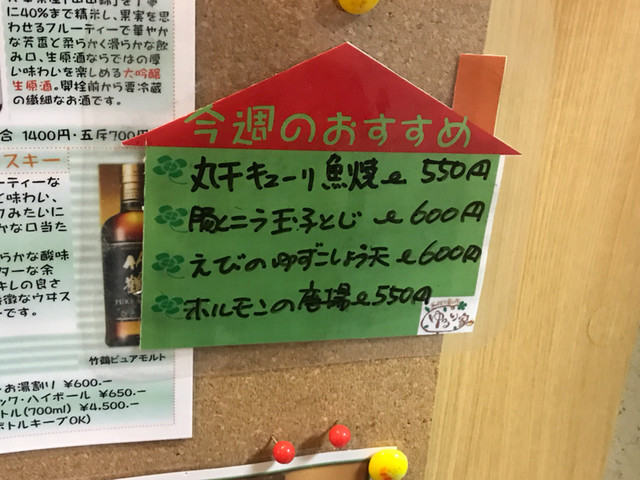 に40%まで精米し、果実を思
わせるフルーティーで華やか
な芳香と柔らかく滑らかな飲
み口、生原酒ならではの厚
い味わいを楽しめる大吟醸
生原酒。開栓前から要冷蔵
の繊細なお酒です。
合 1400円・五斥700円
スキー
ーティーな
と味わい、
みたいに
かな口当た
らかな酸味
ターな余
キレの良さ
特徴なウヰス
ーです。
竹鶴
竹鶴ピュアモルト
お湯割り ¥600.-
ック・ハイボール ¥650.-
トル(700ml) ¥4,500.-
ボトルキープOK)
今週のおすすめ
丸干キューリ魚焼 550円
豚とニラ玉子とじ 600円
えびのゆずこしょう天 600円
ホルモンの唐揚 550円